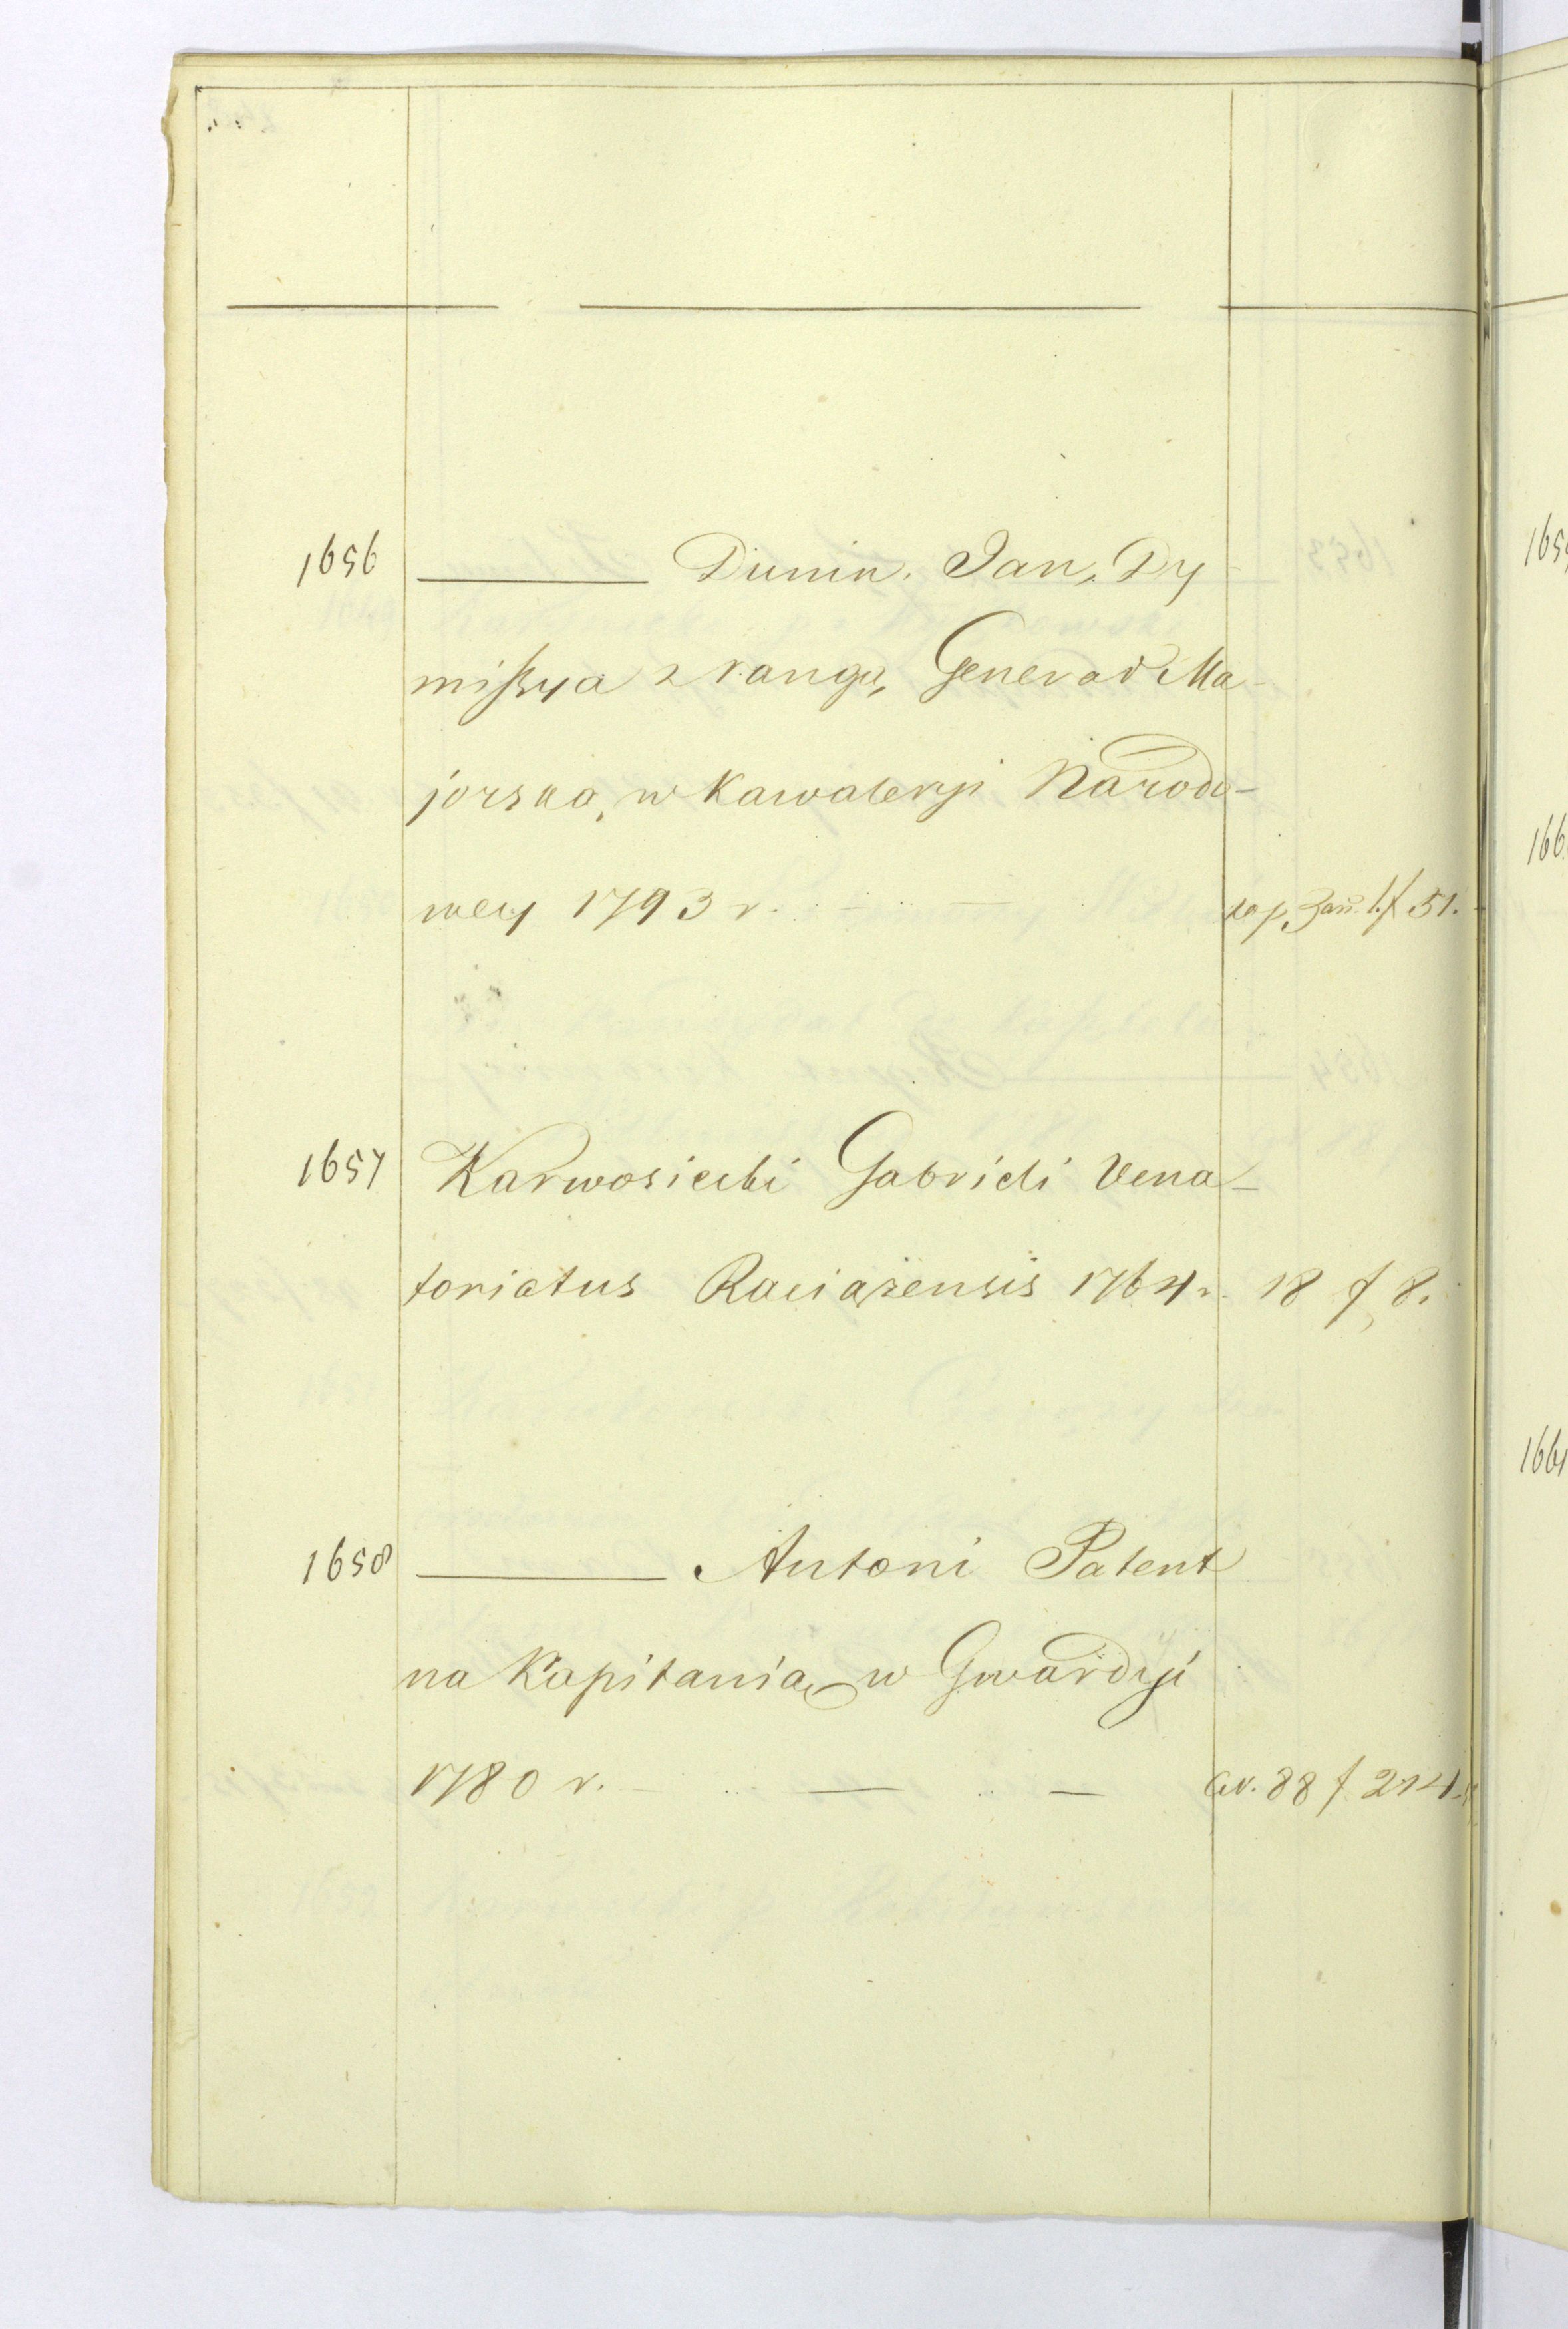 1656 ——— Dunin. Jan, Dy-
mißya z rangą Generał Ma-
jorską, w Kawaleryi Narodo-
wey 1793 r. — f 51.
1657 Karwosiecki Gabrieli Vena-
toriatus Raciążensis 1764 r. 18 f 8.
1658 ——— Antoni Patent
na Kapitanią w Gwardyi
1780 r. — — 88 f 214.